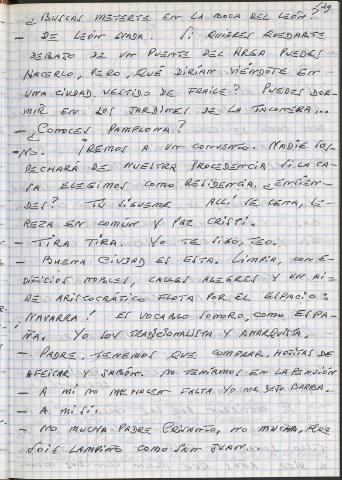 ¿ BUSCAS METERTE EN LA BOCA DEL LEÓN?
- DE LEÓN NADA. SI QUIERES QUEDARTE
DEBAJO DE UN PUENTE DEL ARGA PUEDES
HACERLO, PERO, QUÉ DIRÍAN VIÉNDOTE EN
UNA CIUDAD VESTIDO DE FRAILE? PUEDES DOR-
MIR EN LOS JARDINES DE LA TACONERA...
- ¿CONOCES PAMPLONA?
- NO. IREMOS A UN CONVENTO. NADIE SOS-
PECHARÁ DE NUESTRA PROCEDENCIA SI LA CA-
SA ELEGIMOS COMO RESIDENCIA. ¿ENTIEN-
DES? TU SÍGUEME. ALLÍ SE CENA, SE
REZA EN COMÚN Y PAZ CRISTI.
- TIRA TIRA. YO TE SIGO, TEO.
- BUENA CIUDAD ES ESTA. LIMPIA, CON E-
DIFICIOS NOBLES, CALLES ALEGRES Y UN AI-
RE ARISTOCRÁTICO FLOTA POR EL ESPACIO:
¡NAVARRA! ES VOCABLO SONORO, COMO ESPA-
ÑA. YO SOY TRADICIONALISTA Y ANARQUISTA.
- PADRE, TENEMOS QUE COMPRAR HOJITAS DE
AFEITAR Y JABÓN. NO TENÍAMOS EN LA PENSIÓN
- A MI NO ME HACEN FALTA YO ME DEJO BARBA.
- A MI SI.
- NO MUCHA PADRE CRISANTO, NO MUCHA, QUE
SOIS LAMPIÑO COMO SAN JUAN...